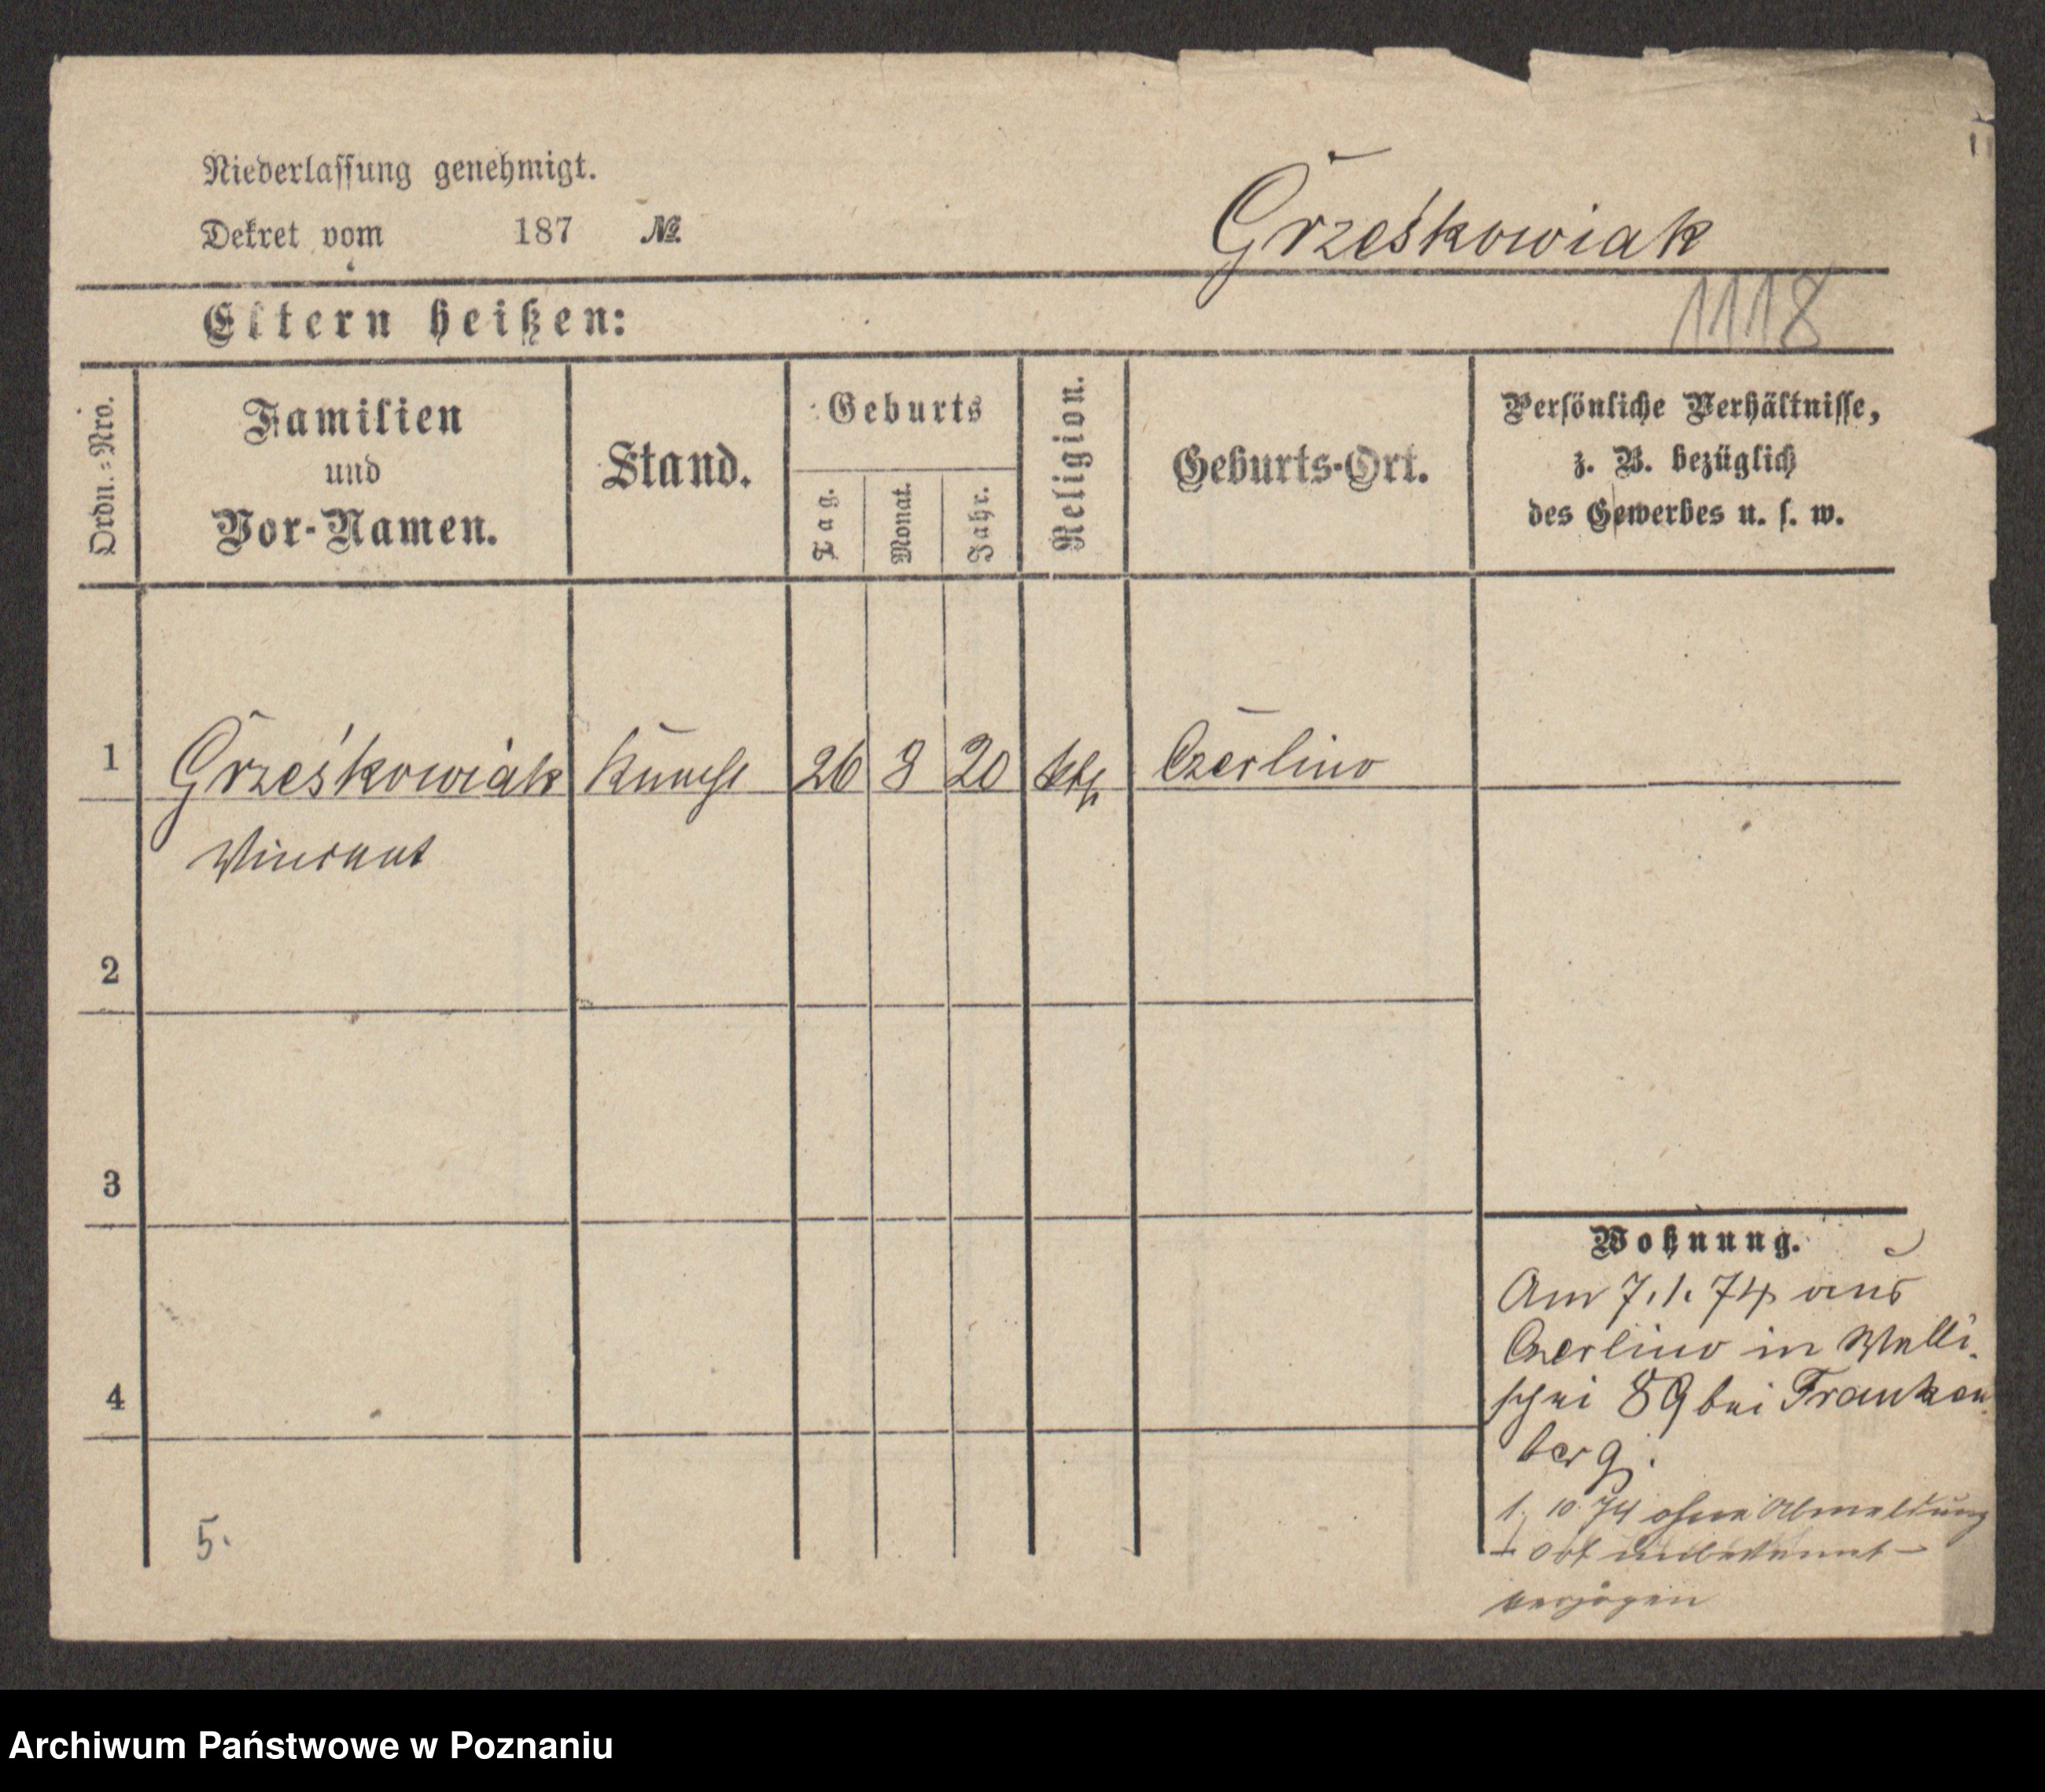 Niederlassung genehmigt.
Dekret vom 187 №
Grześkowiak
1118
Eltern heißen:
Ordn.=Nro.
Familien
und
Vor-Namen.
Stand.
Geburts
Tag.
Monat.
Jahr.
Religion.
Geburts-Ort.
Persönliche Verhältnisse,
z. B. bezüglich
des Gewerbes u. s. w.
1 Grześkowiak Knecht 26 3 20 kth Czerlino
Vincent
2
3
4
5.
Wohnung.
Am 7.1.74 aus
Czerlino in Walli-
schei 89 bei Franken-
berg.
1. 10. 74 ohne Abmeldung
– Ort unbekannt –
verzogen
Archiwum Państwowe w Poznaniu